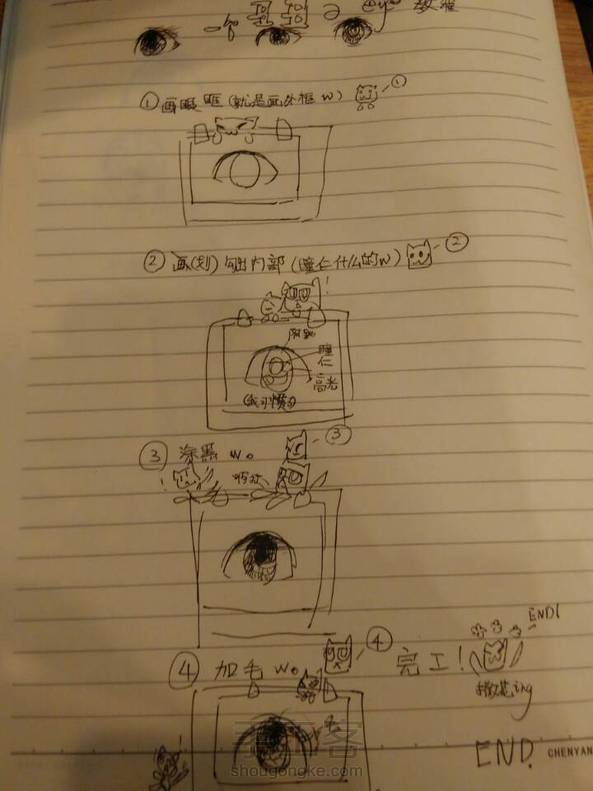 一个 囧囧 の eye 教程
① 画眼眶(就是画外框 w) ①
② 画(划)勾出内部(瞳仁什么的w) ②
阴影
瞳仁
高光
③ 涂墨 w。 ③
④ 加毛 w。 ④
完工!
END!
撒花ing
END.
CHENYAN
手工客
shougongke.com